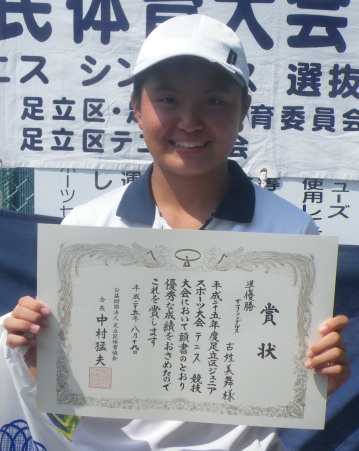 民体育大会
ニス シン
選抜
足立区・
育委員会
足立区テ
会
賞状
準優勝
古姓美舞様
平成二十五年度足立区ジュニア
スポーツ大会 テニス 競技
大会において頭書のとおり
優秀な成績をおさめたので
これを賞します
平成二十五年八月十九日
公益財団法人 足立区体育協会
会長 中村猛夫